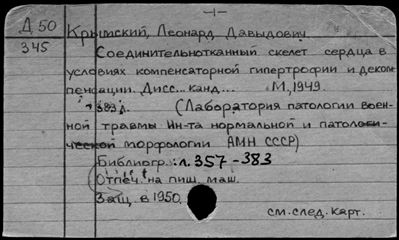 -1-
Д 50
345
Крымский, Леонард Давыдович.
Соединительнотканный скелет сердца в
условиях компенсаторной гипертрофии и деком
пенсации. Дисс... канд... М, 1949.
383 л. (Лаборатория патологии воен-
ной травмы Ин-та нормальной и патологи-
ческой морфологии АМН СССР)
Библиогр: л. 357-383
Отпеч. на пиш. маш.
Защ. в 1950.
см. след. карт.